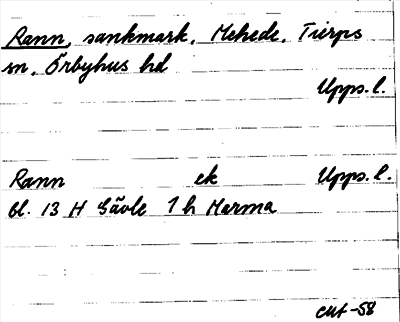 Rann, sankmark, Mehede, Tierps
sn, Örbyhus hd
Upps. l.
Rann ek Upps. l.
bl. 13 H Gävle 1 h Marma
CUt -58